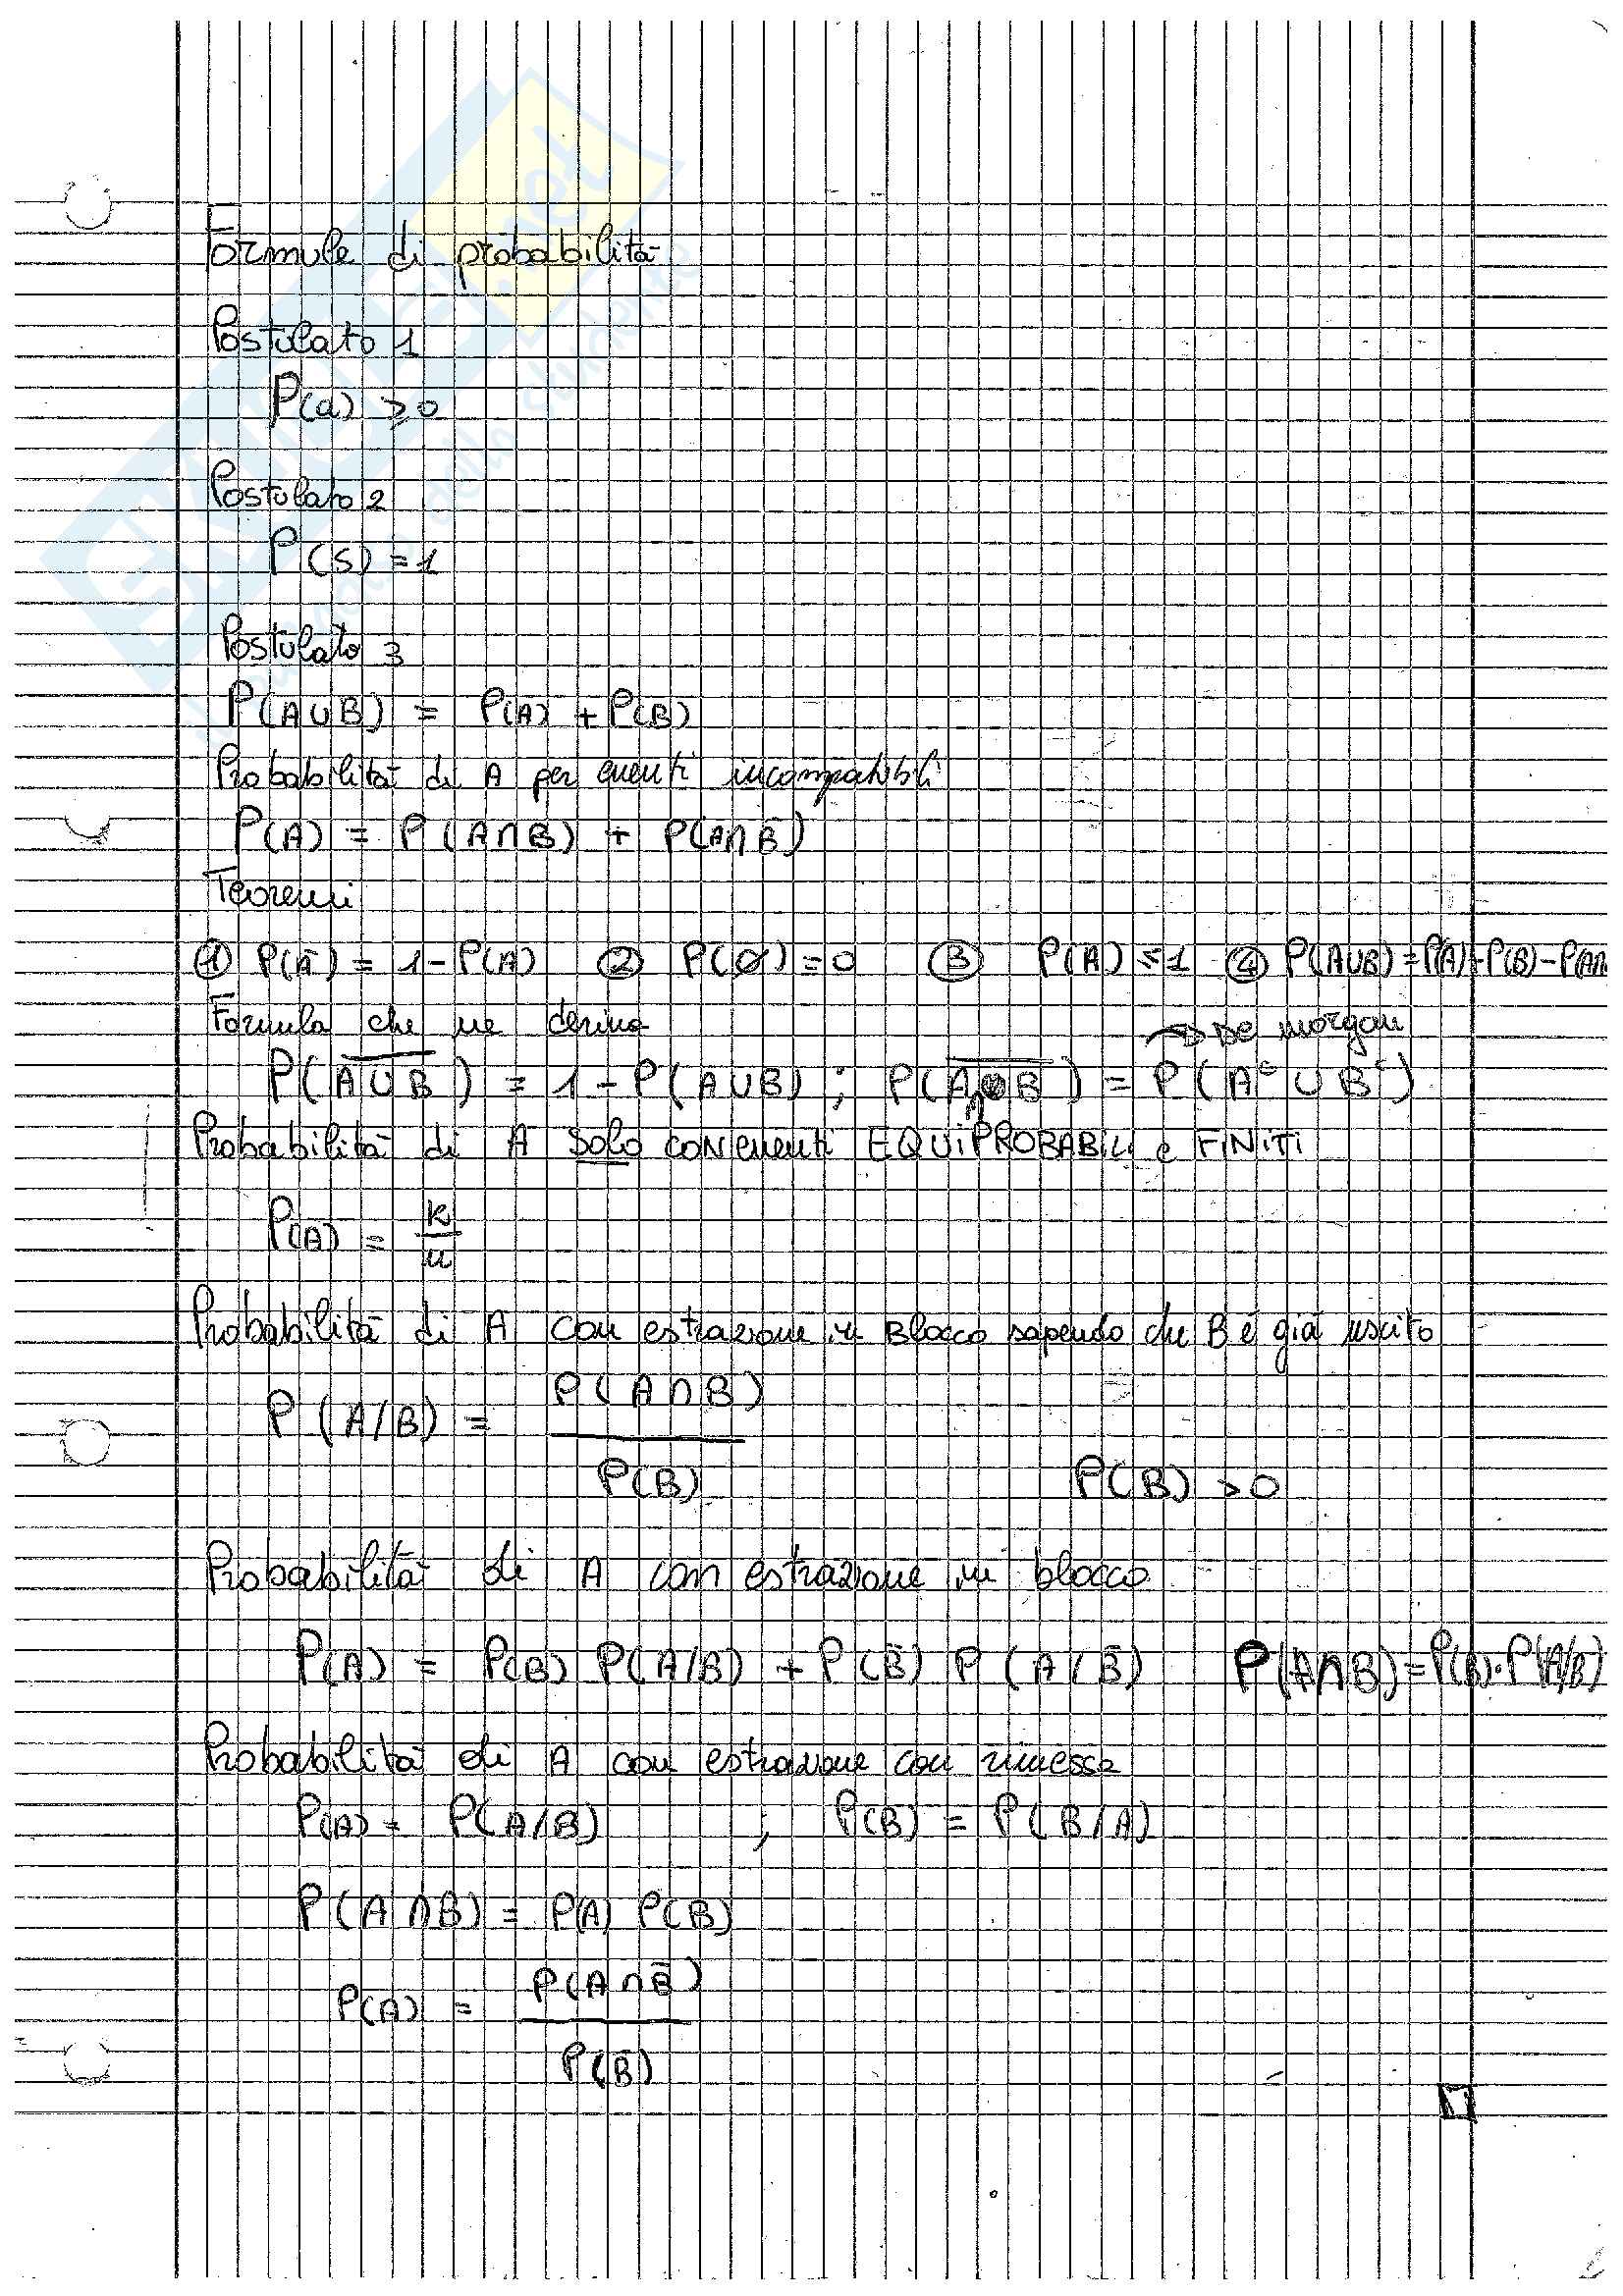 Formule di probabilità
Postulato 1
P(a) ≥ 0
Postulato 2
P(S) = 1
Postulato 3
P(A∪B) = P(A) + P(B)
Probabilità di A per eventi incompatibili
P(A) = P(A∩B) + P(A∩B̄)
Teoremi
① P(Ā) = 1 - P(A) ② P(∅) = 0 ③ P(A) ≤ 1 ④ P(A∪B) = P(A)+P(B)-P(A∩
Formula che ne deriva → De morgan
P(\overline{A∪B}) = 1 - P(A∪B) ; P(\overline{A∩B}) = P(Aᶜ ∪ Bᶜ)
Probabilità di A SOLO CON eventi EQUIPROBABILI e FINITI
P(A) = K/n
Probabilità di A con estrazione in Blocco sapendo che B è già uscito
P(A/B) = P(A∩B) / P(B) P(B) > 0
Probabilità di A con estrazione in blocco
P(A) = P(B) P(A/B) + P(B̄) P(A/B̄) P(A∩B) = P(B)·P(A/B)
Probabilità di A con estrazione con rimessa
P(A) = P(A/B) ; P(B) = P(B/A)
P(A∩B) = P(A) P(B)
P(A) = P(A∩B̄) / P(B̄)